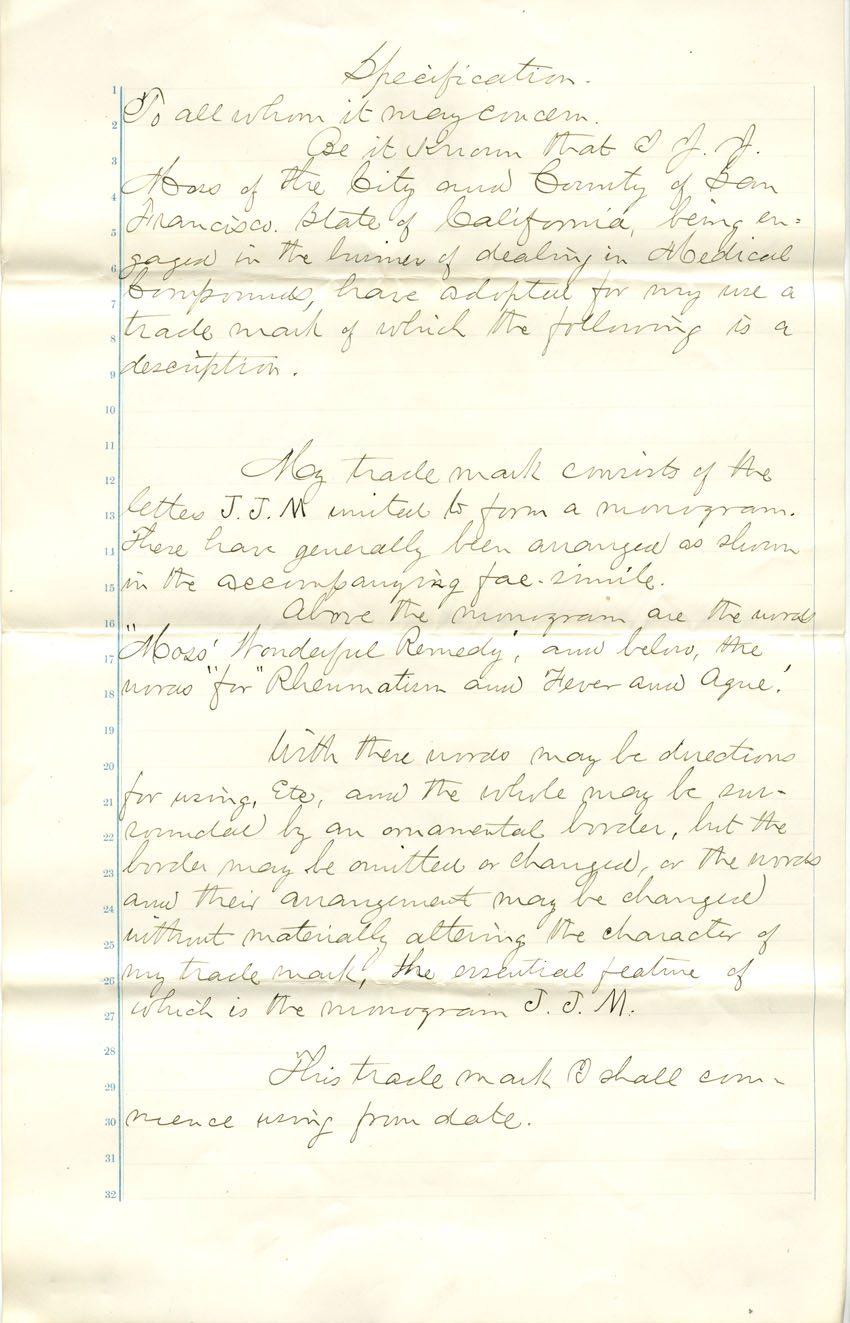 Specification.
1
To all whom it may concern.
2
Be it Known that I J. J.
3
Moss of the City and County of San
4
Francisco. State of California, being en=
5
gaged in the business of dealing in Medical
6
Compounds, have adopted for my use a
7
trade mark of which the following is a
8
description.
9
10
11
My trade mark consists of the
12
letters J. J. M united to form a monogram.
13
These have generally been arranged as shown
14
in the accompanying fac-simile.
15
Above the monogram are the words
16
"Moss' Wonderful Remedy", and below, the
17
words "for" Rheumatism and Fever and Ague.'
18
19
With these words may be directions
20
for using, Etc, and the whole may be sur-
21
rounded by an ornamental border, but the
22
border may be omitted or changed, or the words
23
and their arrangement may be changed
24
without materially altering the character of
25
my trade mark, the essential feature of
26
which is the monogram J. J. M.
27
28
This trade mark I shall com-
29
mence using from date.
30
31
32